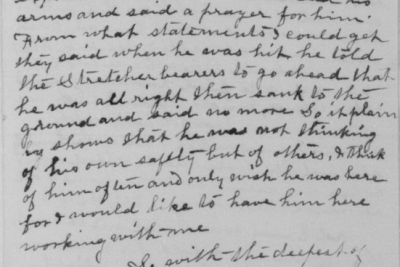 arms and said a prayer for him.
From what statements I could get
they said when he was hit he told
the Stretcher bearers to go ahead that
he was all right then sank to the
ground and said no more So it plain
ly shows that he was not thinking
of his own safty but of others, I think
of him often and only wish he was here
for I would like to have him here
working with me
So with the deepest of